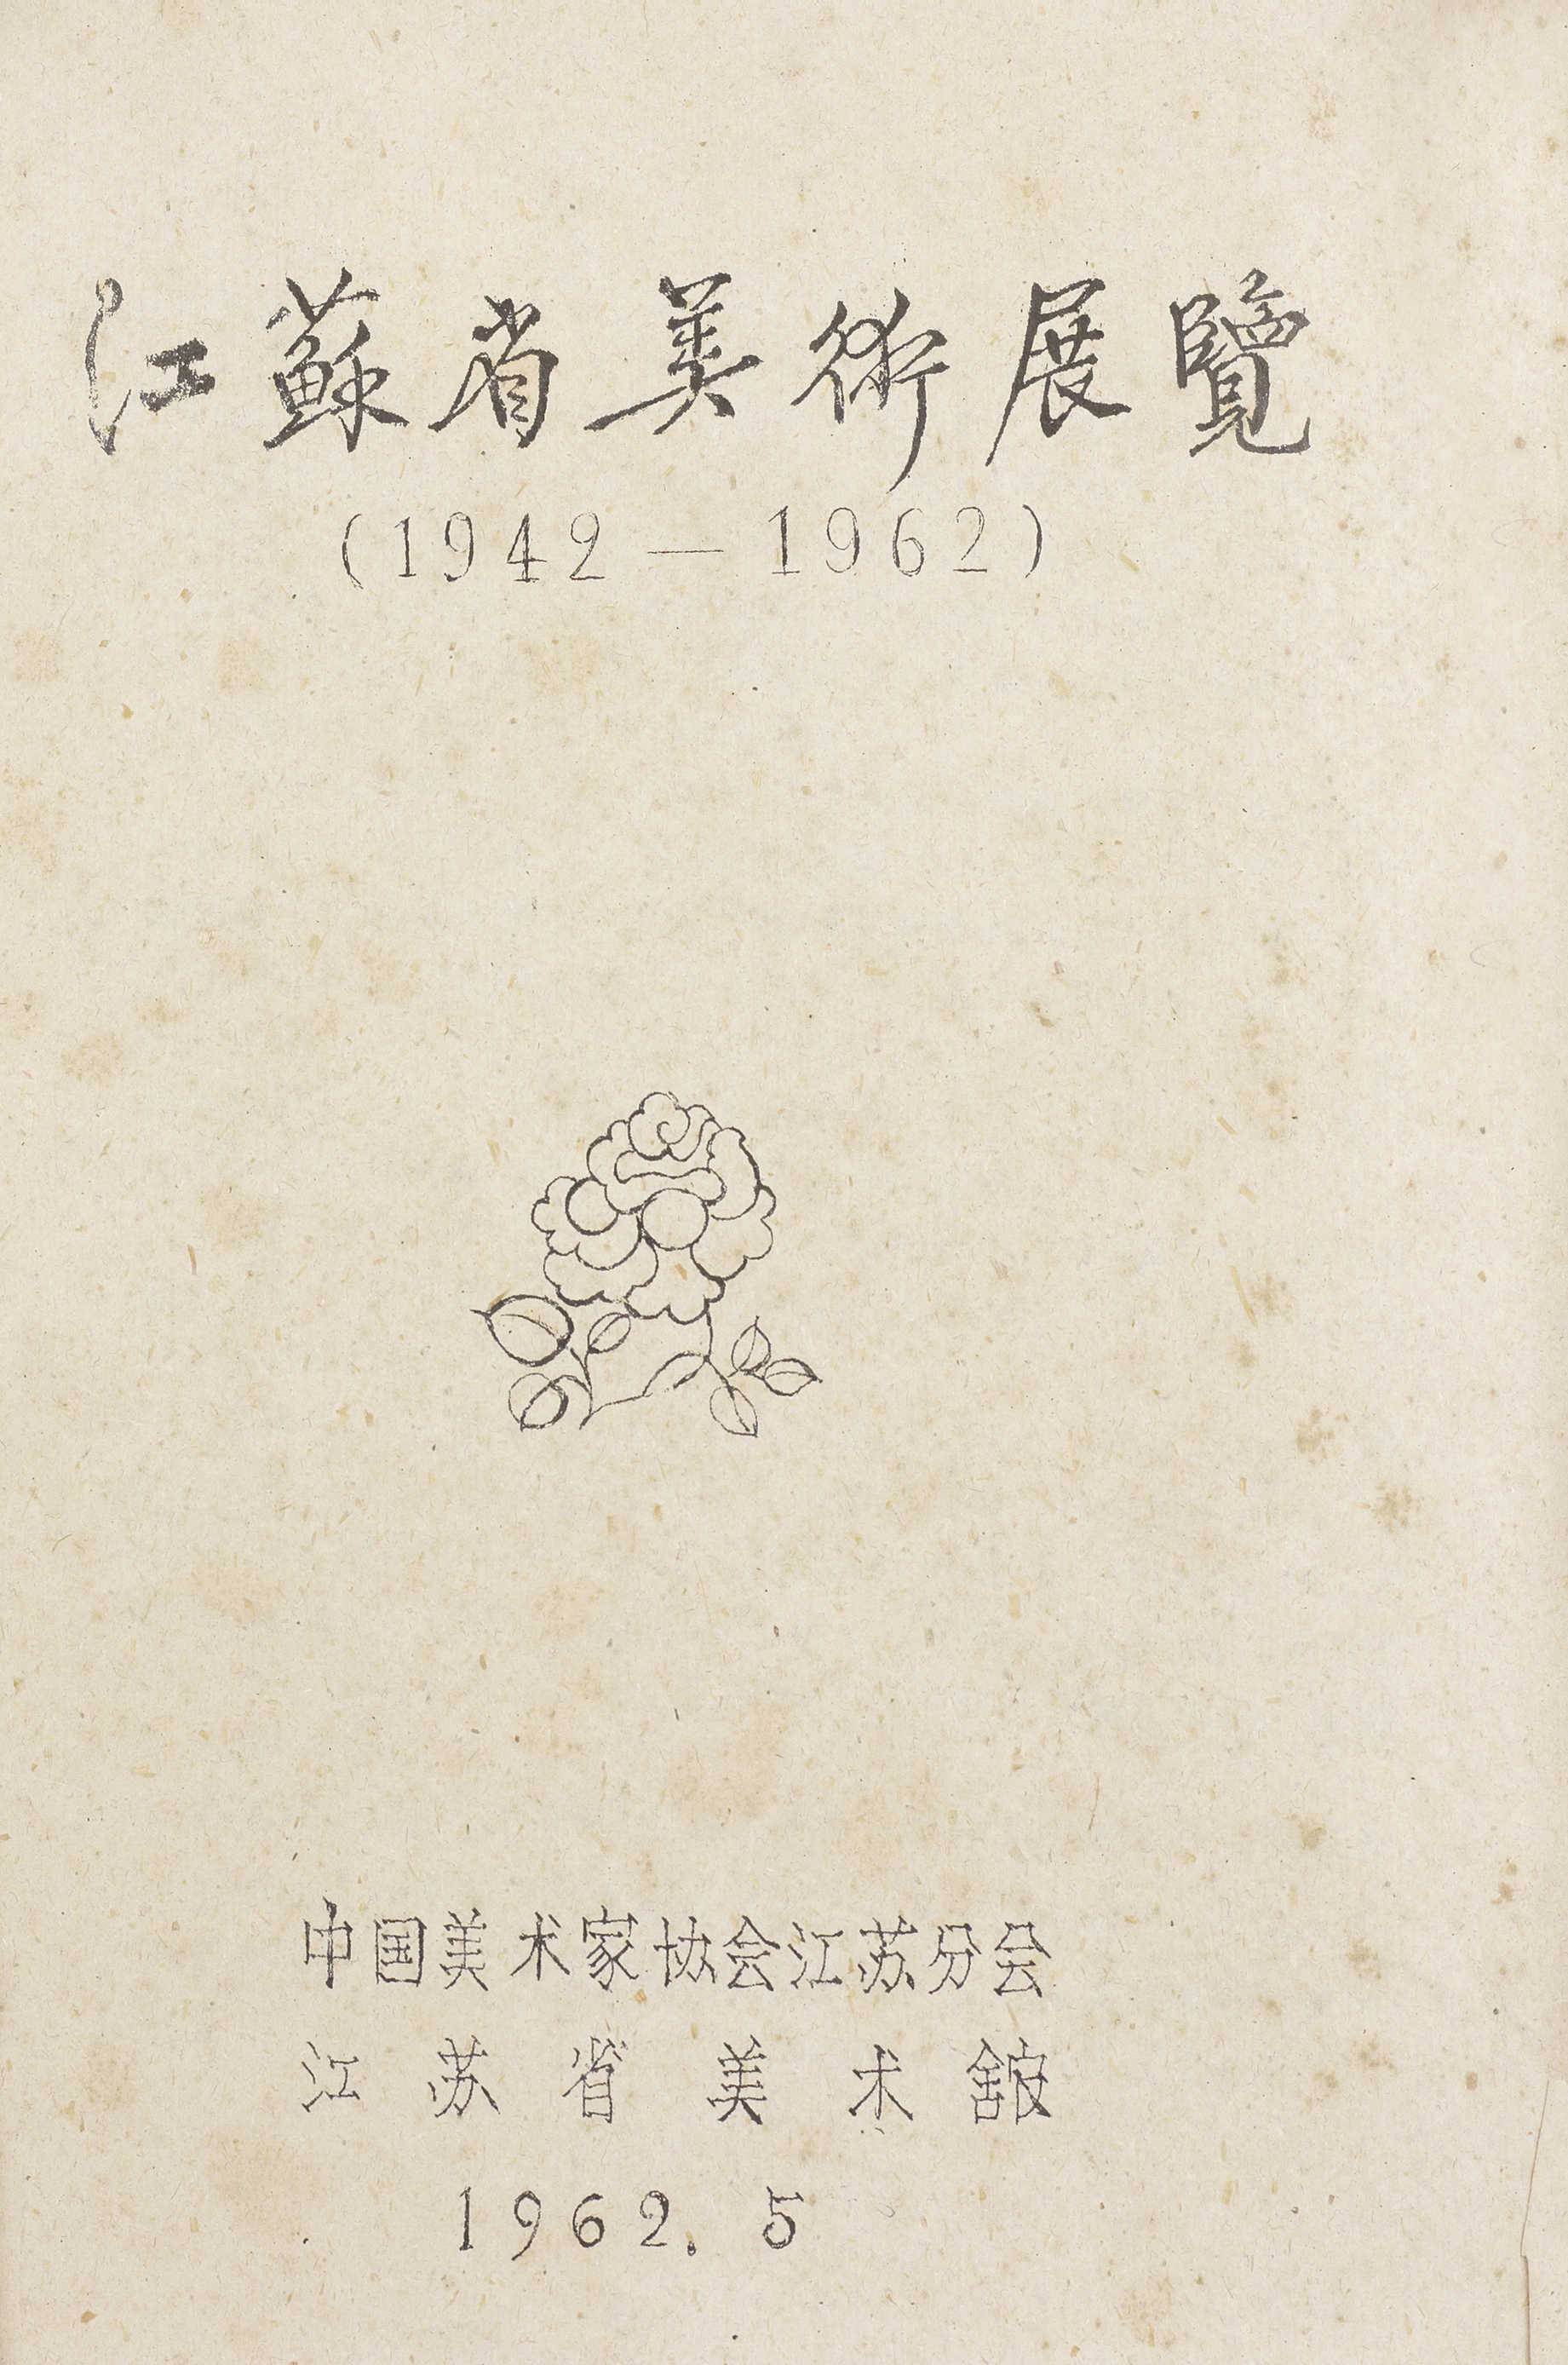 江蘇省美術展覽
(1942—1962)
中国美术家协会江苏分会
江苏省美术舘
1962.5